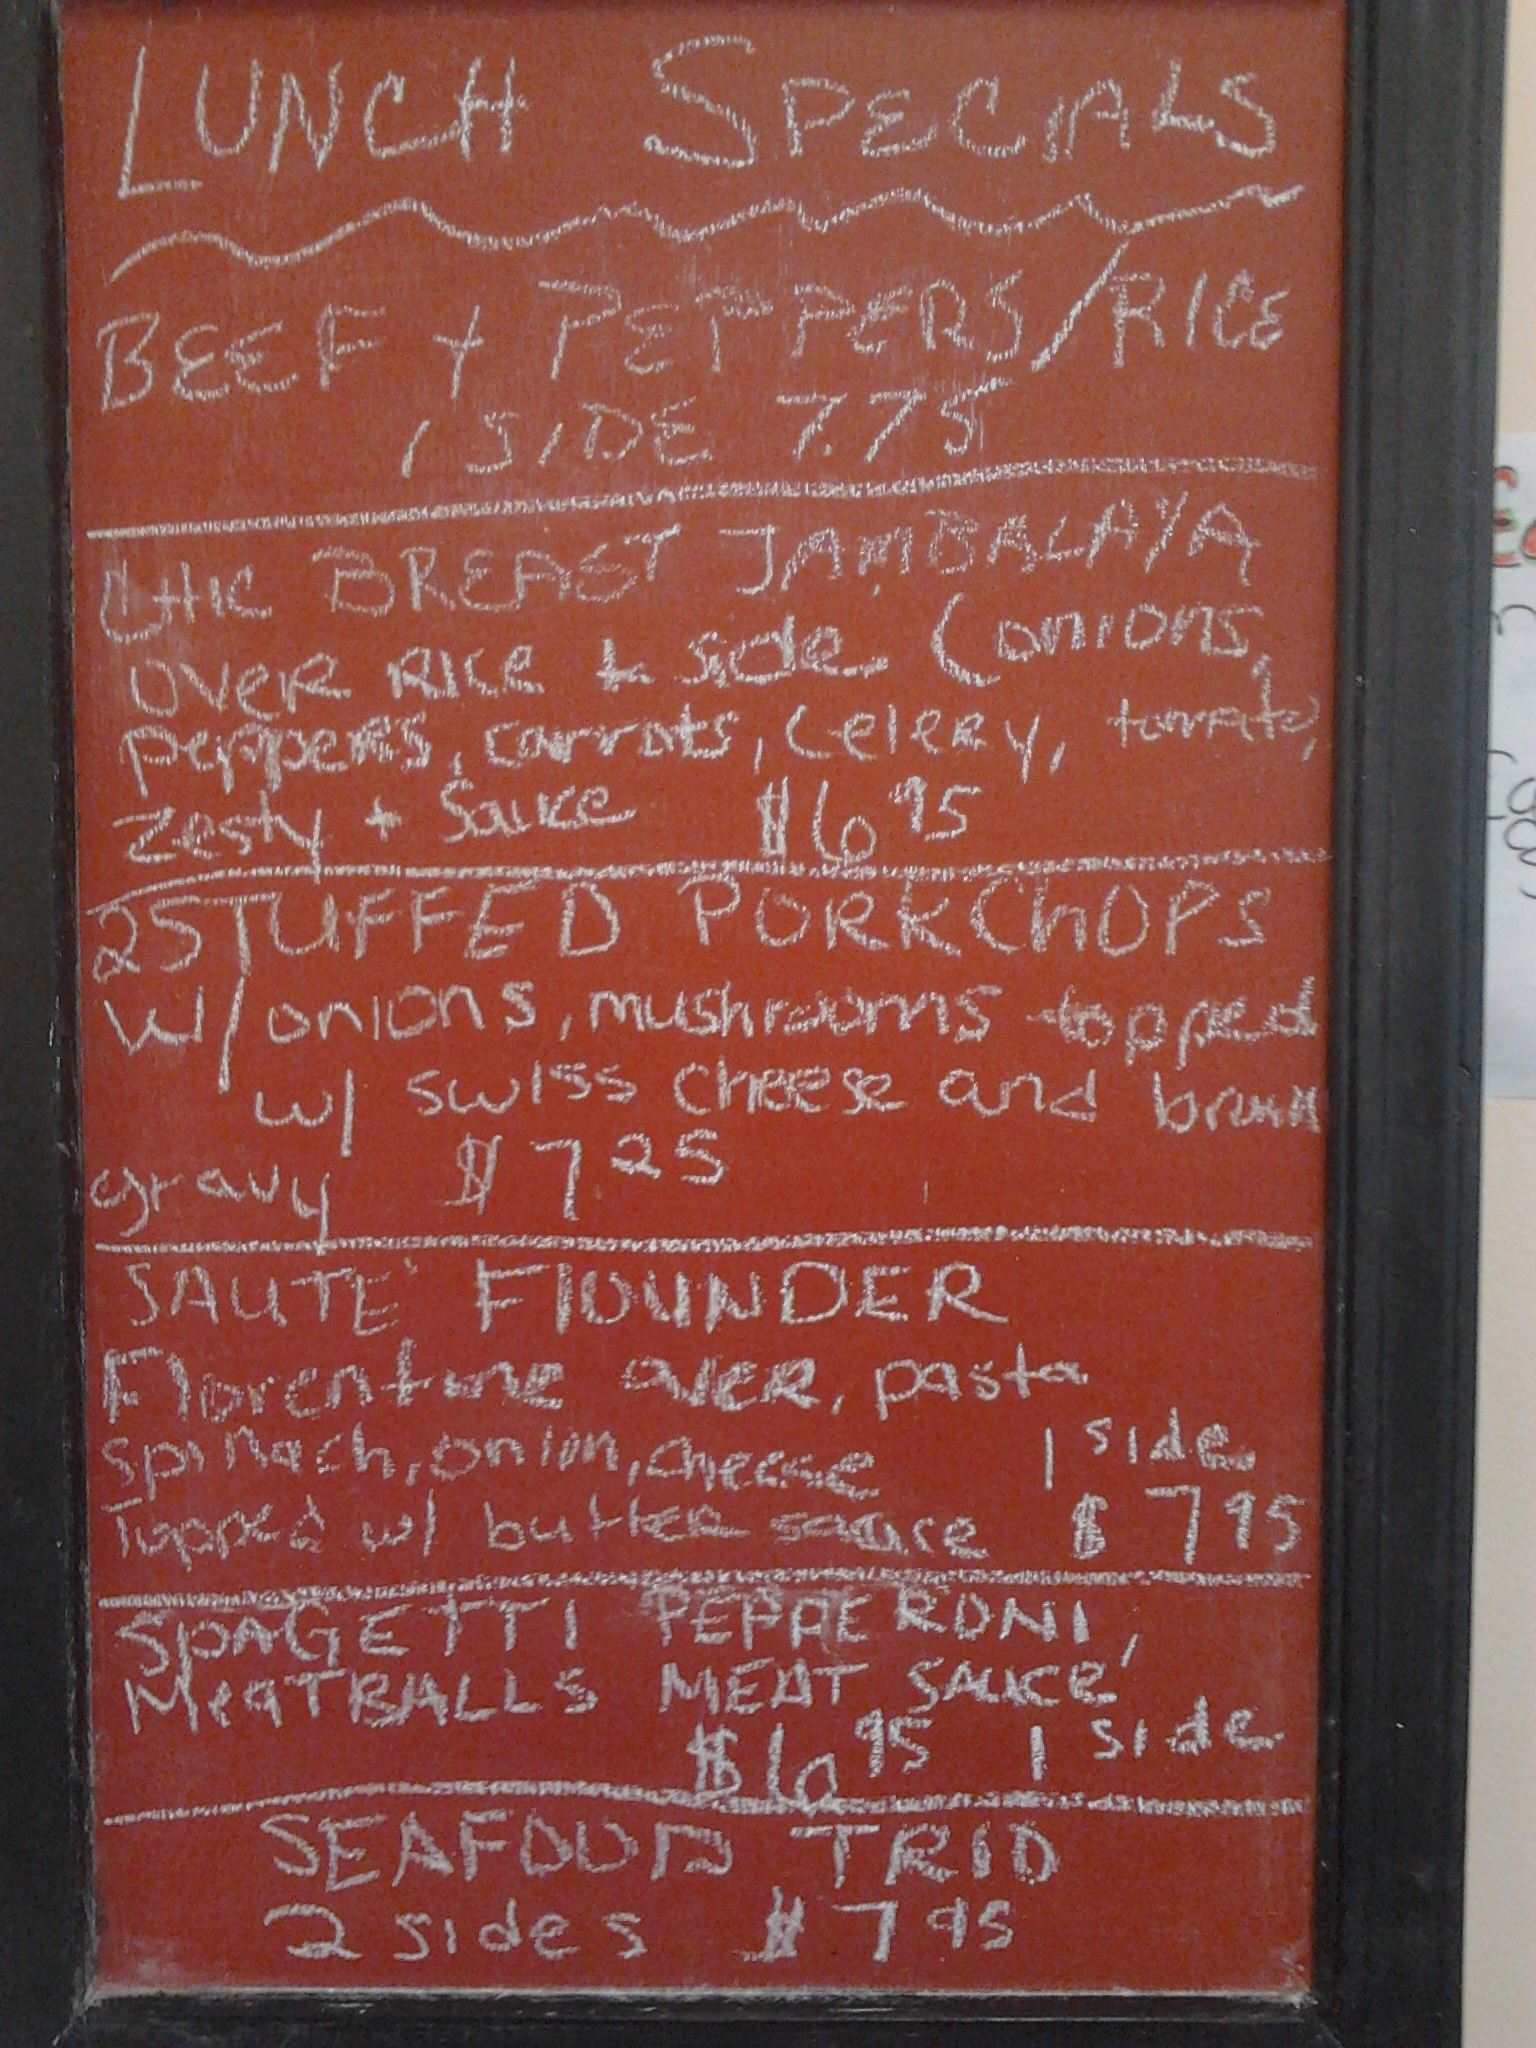 LUNCH SPECIALS
BEEF + PEPPERS/RICE
1 SIDE 7.75
CHIC BREAST JAMBALAYA
OVER RICE + side (onions,
peppers, carrots, celery, tomato,
zesty + Sauce $6 95
2 STUFFED PORKChOPS
w/ onions, mushrooms topped
w/ swiss cheese and brown
gravy $7 25
SAUTE' FlOUNDER
Florentine over, pasta
spinach, onion, cheese 1 side
Topped w/ butter sauce $7 95
SPAGETTI PEPPERONI,
MeATBALLS MEAT SAUCE
$6 95 1 side
SEAFOOD TRIO
2 sides $7 95